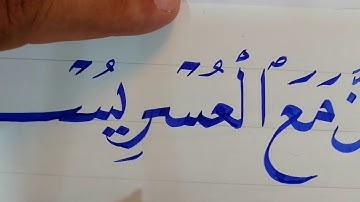 نَّ مَعَ ٱلْعُسْرِ يُسْـ